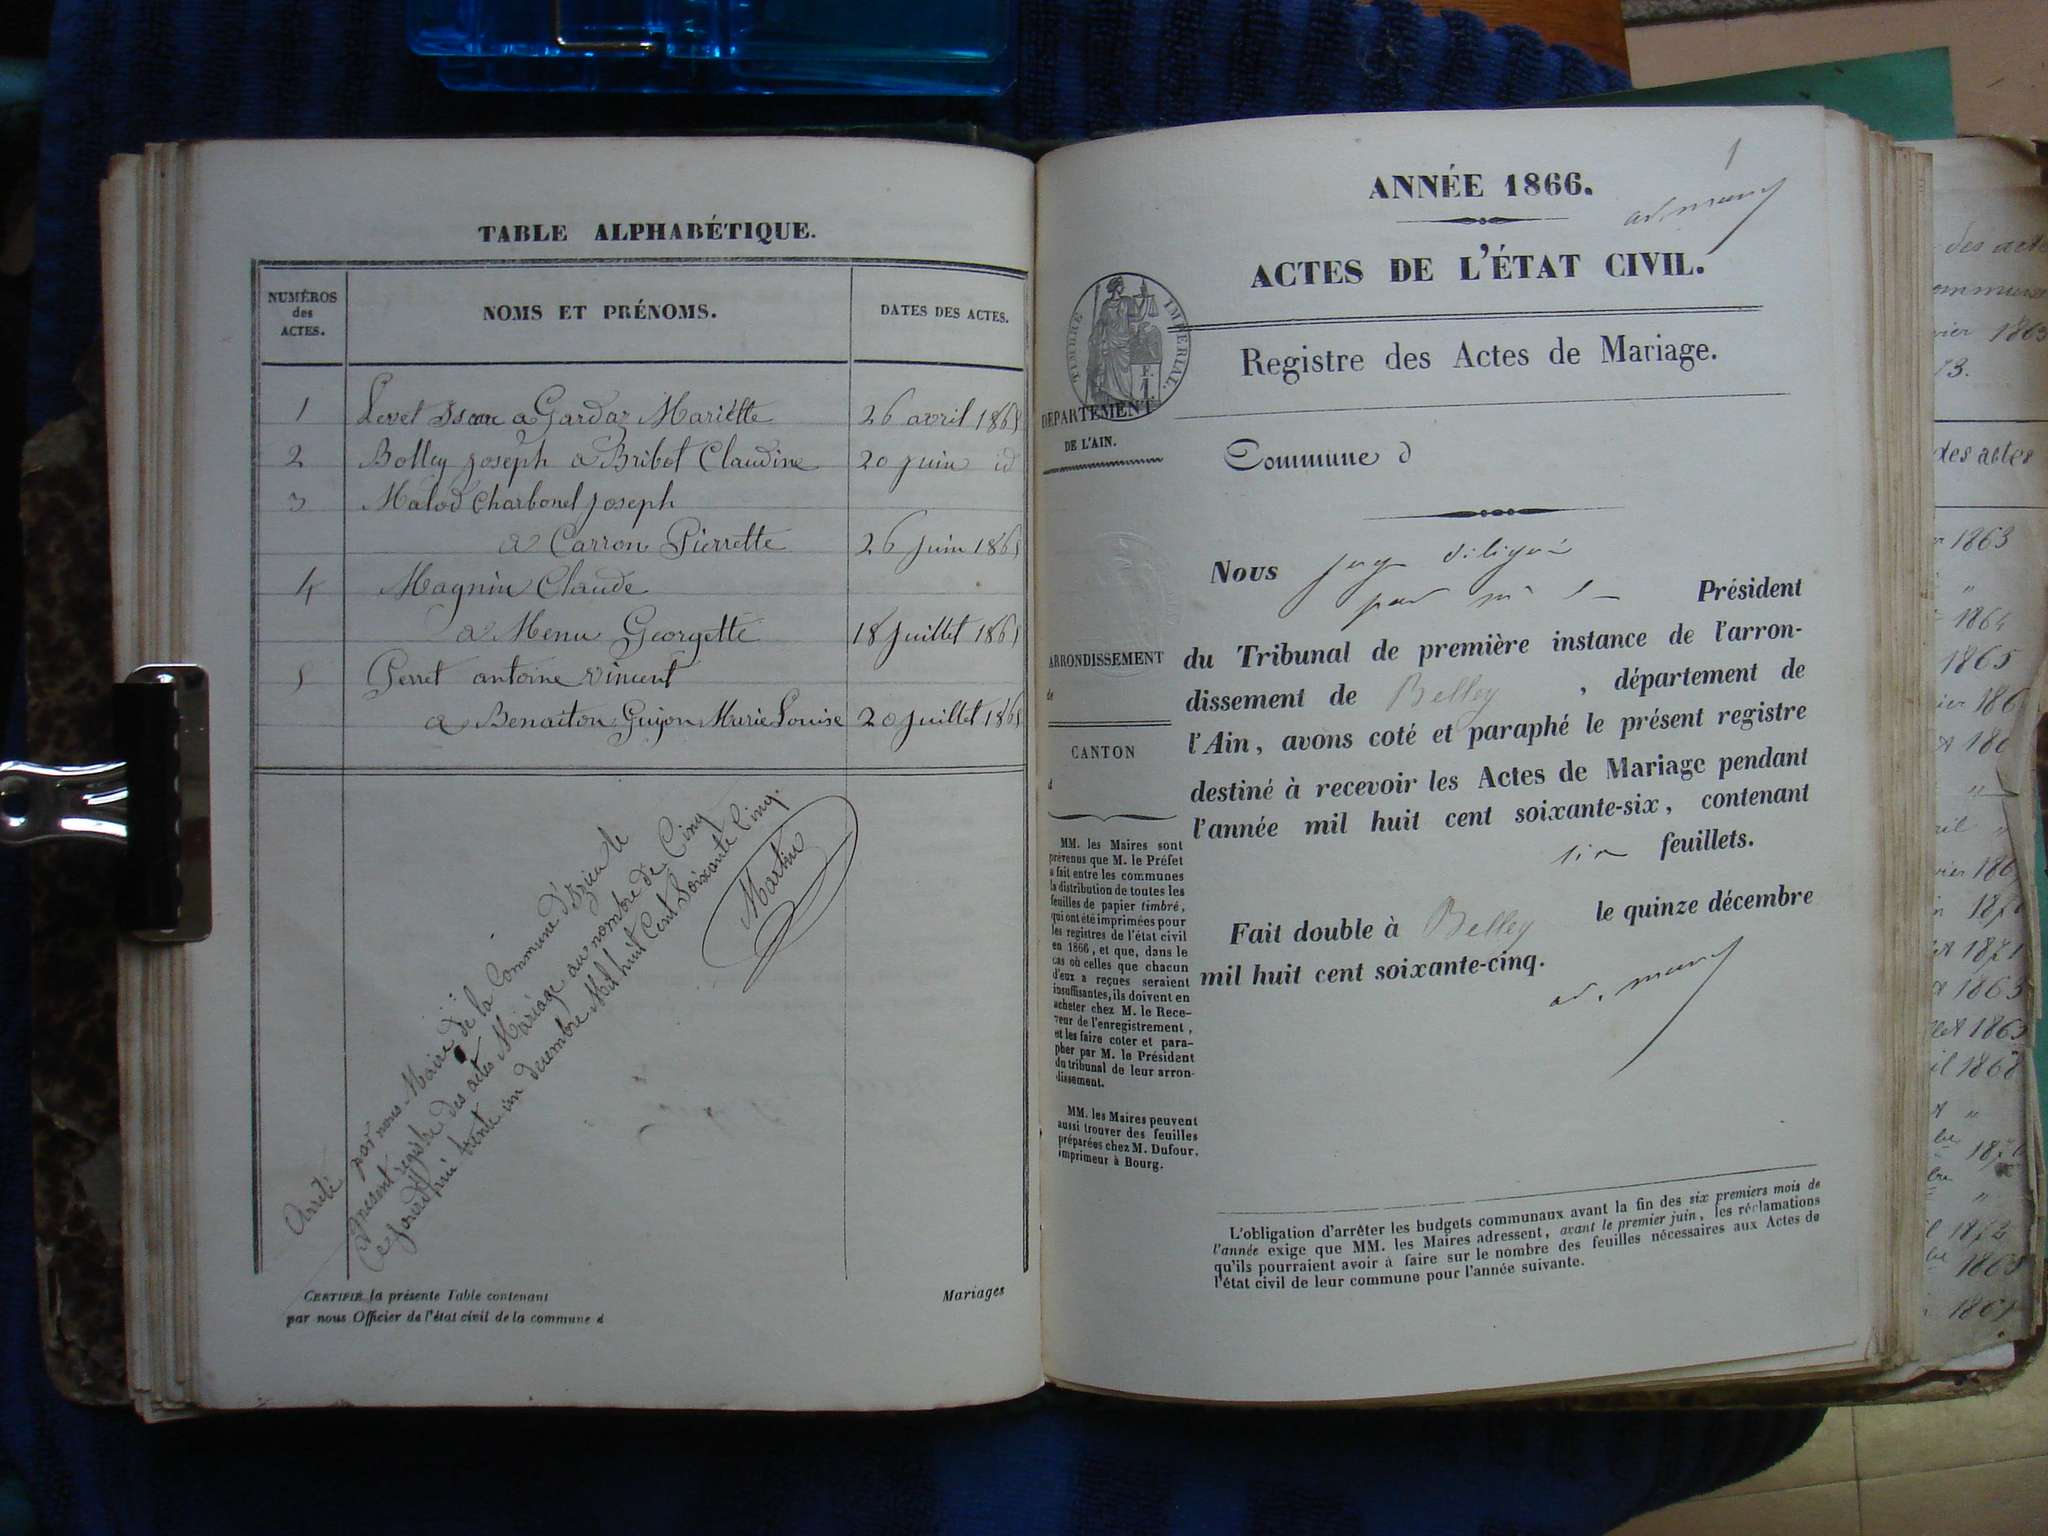 TABLE ALPHABÉTIQUE.
NUMÉROS des ACTES.
NOMS ET PRÉNOMS.
DATES DES ACTES.
1 Levet Isaac a Gardaz Mariette 26 avril 1865
2 Bolley Joseph a Bribot Claudine 20 juin id
3 Malod Charbonel Joseph
a Carron Pierrette 26 juin 1865
4 Magnin Claude
a Menu Georgette 18 juillet 1865
5 Perret antoine vincent
a Benaiton Guyon Marie Louise 20 juillet 1865
Arreté par nous Maire de la Commune d'Izieu le
présent registre des actes Mariage au nombre de Cinq
Ce jourd'hui trente un decembre Mil huit Cent Soixante Cinq.
Martin
CERTIFIÉ la présente Table contenant
Mariages
par nous Officier de l'état civil de la commune d
1
ANNÉE 1866.
ACTES DE L'ÉTAT CIVIL.
TIMBRE IMPÉRIAL.
Registre des Actes de Mariage.
DÉPARTEMENT
DE L'AIN.
Commune d
ARRONDISSEMENT
de
CANTON
d
MM. les Maires sont
prévenus que M. le Préfet
a fait entre les communes
la distribution de toutes les
feuilles de papier timbré,
qui ont été imprimées pour
les registres de l'état civil
en 1866, et que, dans le
cas où celles que chacun
d'eux a reçues seraient
insuffisantes, ils doivent en
acheter chez M. le Rece-
veur de l'enregistrement,
et les faire coter et para-
pher par M. le Président
du tribunal de leur arron-
dissement.
MM. les Maires peuvent
aussi trouver des feuilles
préparées chez M. Dufour,
imprimeur à Bourg.
Nous juge délégué
par Mr le Président
du Tribunal de première instance de l'arron-
dissement de Belley, département de
l'Ain, avons coté et paraphé le présent registre
destiné à recevoir les Actes de Mariage pendant
l'année mil huit cent soixante-six, contenant
six feuillets.
Fait double à Belley le quinze décembre
mil huit cent soixante-cinq.
L'obligation d'arrêter les budgets communaux avant la fin des six premiers mois de
l'année exige que MM. les Maires adressent, avant le premier juin, les réclamations
qu'ils pourraient avoir à faire sur le nombre des feuilles nécessaires aux Actes de
l'état civil de leur commune pour l'année suivante.
des actes
1863
1865